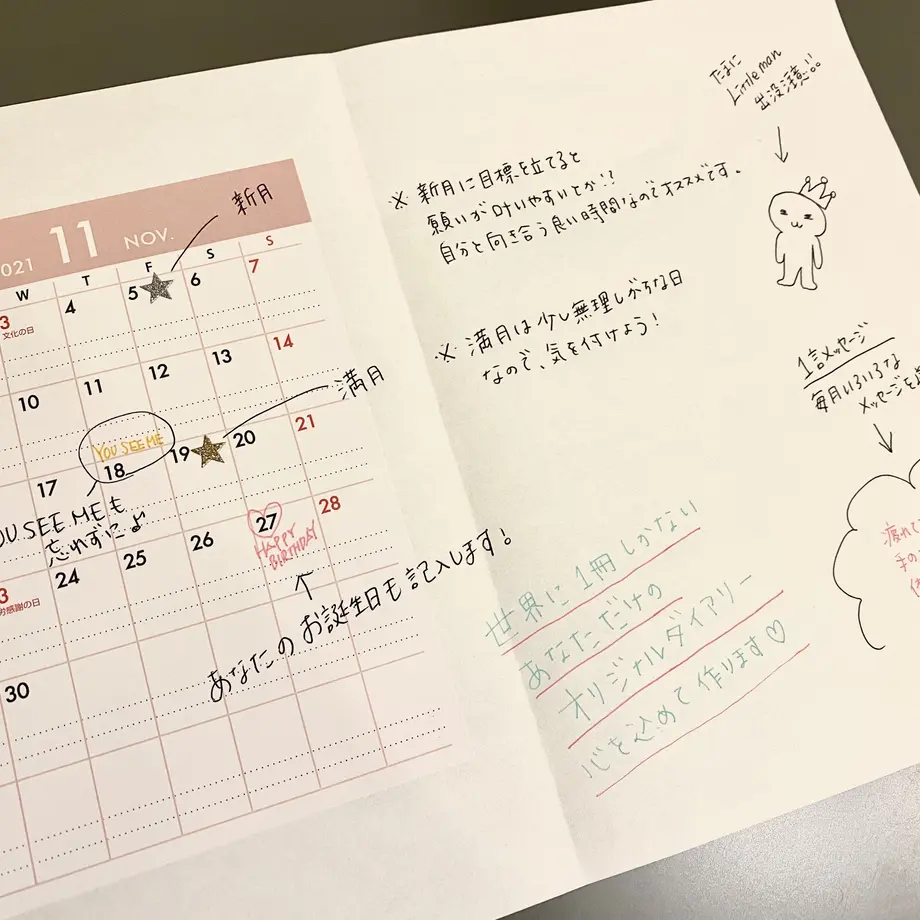 2021 11 NOV.
W T F S S
3 4 5 6 7
文化の日
新月
10 11 12 13 14
YOU SEE ME
17 18 19 20 21
満月
YOU SEE ME も
忘れずに♪
3 24 25 26 27 28
労感謝の日
HAPPY
BIRTHDAY
あなたのお誕生日も記入します!
30
※ 新月に目標を立てると
願いが叶いやすいとか!?
自分と向き合う良い時間なのでオススメです。
※ 満月は少し無理しがちな日
なので、気を付けよう!
世界に1冊しかない
あなただけの
オリジナルダイアリー
心を込めて作ります♡
たまに
Little man
出没注意!!
1言メッセージ
毎月いろいろな
メッセージを
疲れて
手の